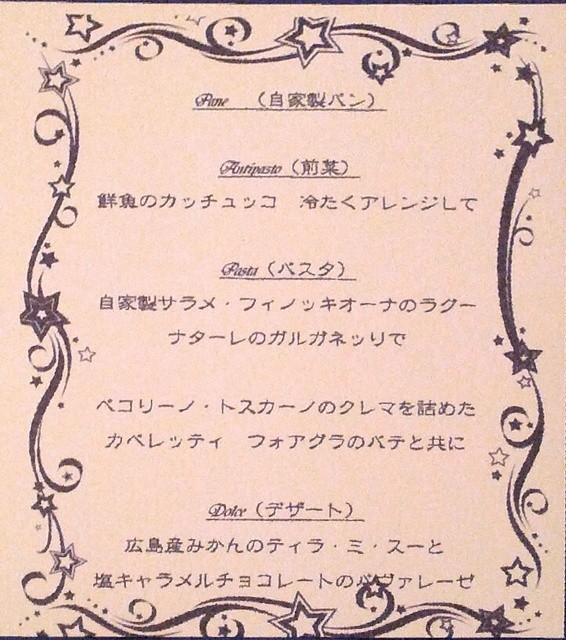 Pane （自家製パン）
Antipasto（前菜）
鮮魚のカッチュッコ　冷たくアレンジして
Pasta（パスタ）
自家製サラメ・フィノッキオーナのラグー
ナターレのガルガネッリで
ペコリーノ・トスカーノのクレマを詰めた
カペレッティ　フォアグラのパテと共に
Dolce（デザート）
広島産みかんのティラ・ミ・スーと
塩キャラメルチョコレートのババァレーゼ